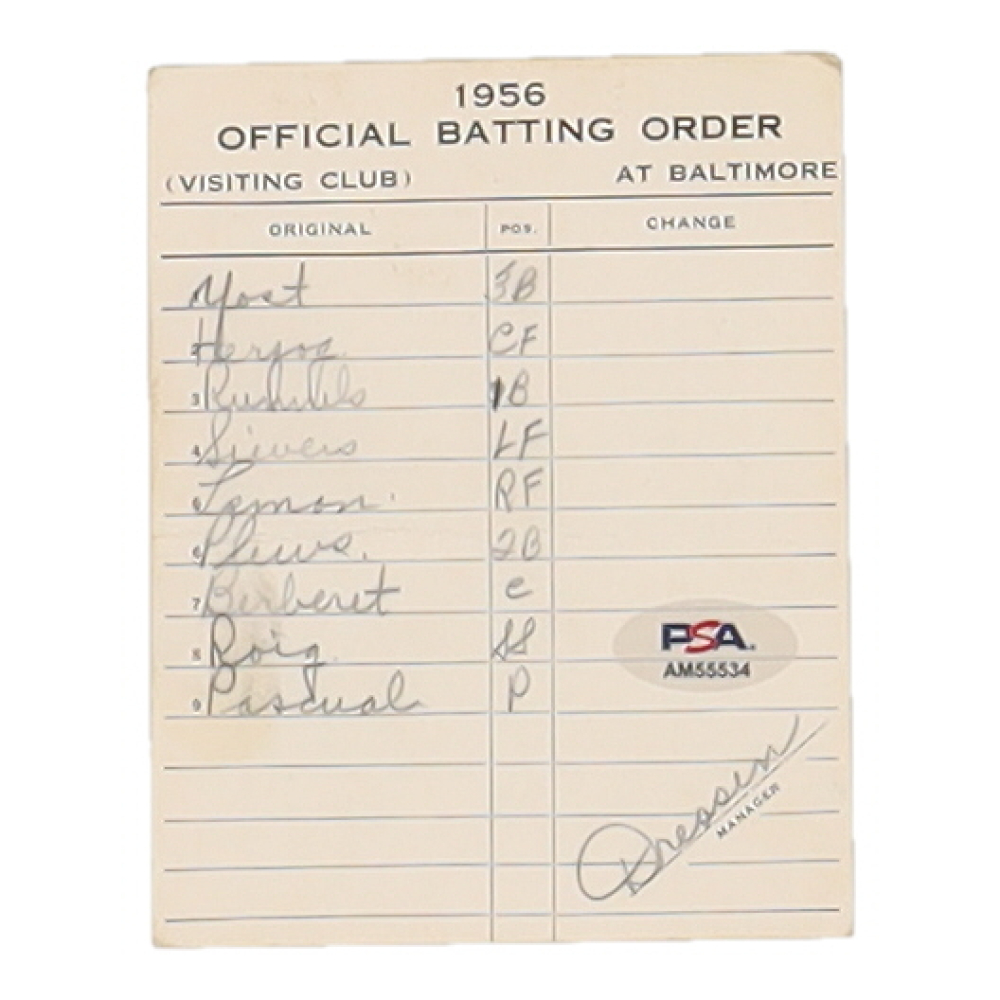 1956
OFFICIAL BATTING ORDER
(VISITING CLUB) AT BALTIMORE
ORIGINAL POS. CHANGE
Yost 3B
2 Herzog CF
3 Runnels 1B
4 Sievers LF
5 Lemon. RF
6 Plews. 2B
7 Berberet C
8 Roig SS
9 Pascual P
PSA.
AM55534
Dressen
MANAGER